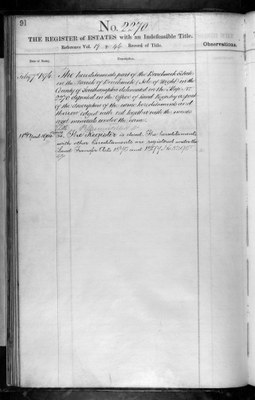 91
No. 2270
THE REGISTER of ESTATES with an Indefeasible Title.
Reference Vol. 17 Record of Title.
Observations.
Date of Entry.
Description.
July 7th 1876
The hereditaments part of the
in the Parish of (Isle of Wight) in the
County of Southampton delineated on the Map No.
2270 deposited in the Office of Land Registry as part
of the description of the same hereditaments and
thereon edged with red together with the mines
and minerals under the same.
18th April
The Register is closed. The hereditaments
with other hereditaments are registered under the
Land Transfer Acts 1875 and 1897.